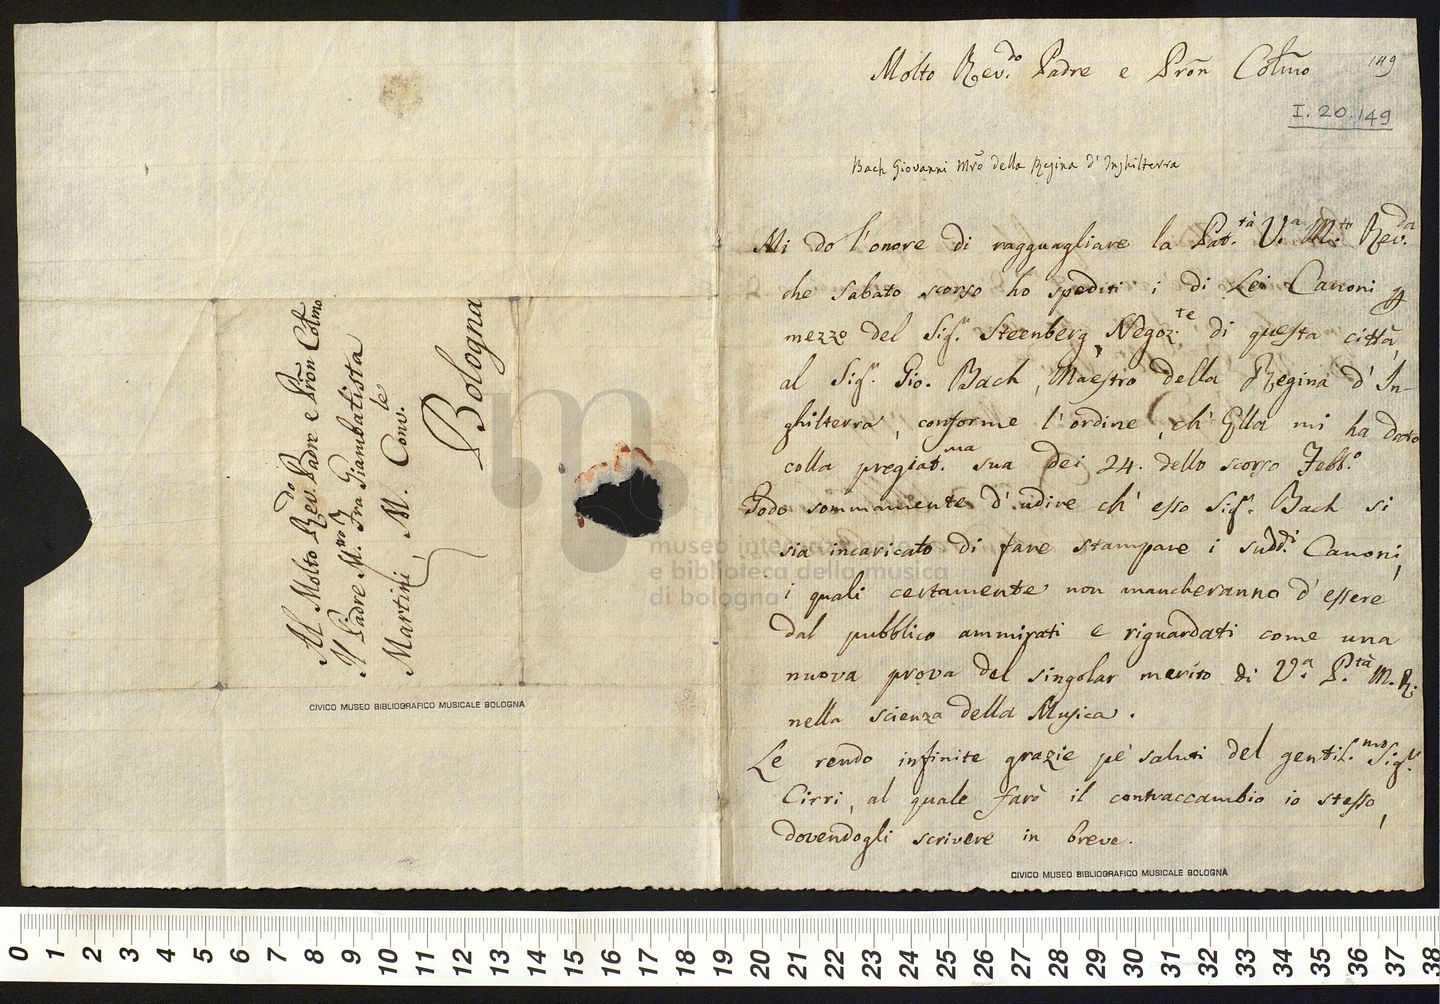 Al Molto Rev.do Padre e Pron Colmo
Il Padre M.ro Fra Giambatista
Martini, M. Conv.le
Bologna
CIVICO MUSEO BIBLIOGRAFICO MUSICALE BOLOGNA
museo internazionale
e biblioteca della musica
di bologna
Molto Rev.do Padre e Pron Colmo
149
I. 20. 149
Bach Giovanni Mro della Regina d'Inghilterra
Mi do l'onore di ragguagliare la Pat.tà V.a M.to Rev.da
che sabato scorso ho spediti i di Lei Canoni
mezzo del Sig.r Steenberg, Negoz.te di questa città,
al Sig.r Gio. Bach, Maestro della Regina d'In-
ghilterra, conforme l'ordine, ch'Ella mi ha dato
colla pregiat.ma sua dei 24. dello scorso Febb.o
Godo sommamente d'udire ch'esso Sig.r Bach si
sia incaricato di fare stampare i sudd.i Canoni,
i quali certamente non mancheranno d'essere
dal pubblico ammirati e riguardati come una
nuova prova del singolar merito di V.a P.tà M. R.
nella scienza della Musica.
Le rendo infinite grazie pe' saluti del gentil.mo Sig.r
Cirri, al quale farò il contraccambio io stesso,
dovendogli scrivere in breve.
CIVICO MUSEO BIBLIOGRAFICO MUSICALE BOLOGNA
0 1 2 3 4 5 6 7 8 9 10 11 12 13 14 15 16 17 18 19 20 21 22 23 24 25 26 27 28 29 30 31 32 33 34 35 36 37 38